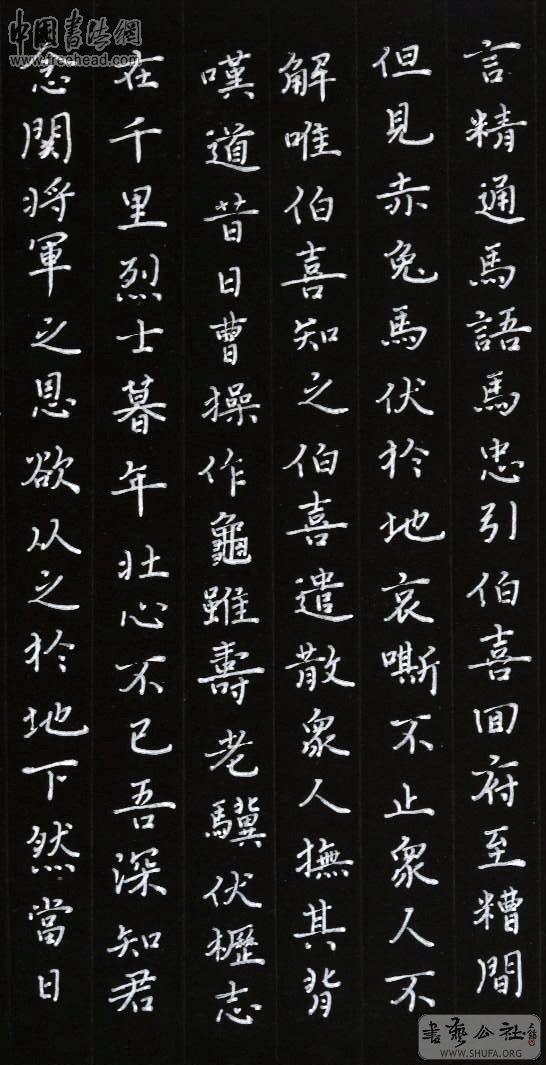 言精通馬語馬忠引伯喜囬府至糟間
但見赤兔馬伏於地哀嘶不止衆人不
解唯伯喜知之伯喜遣散衆人撫其背
嘆道昔日曹操作龜雖壽老驥伏櫪志
在千里烈士暮年壯心不已吾深知君
念関将軍之恩欲从之於地下然當日
中国书法網
www.freehead.com
書藝公社
WWW.SHUFA.ORG